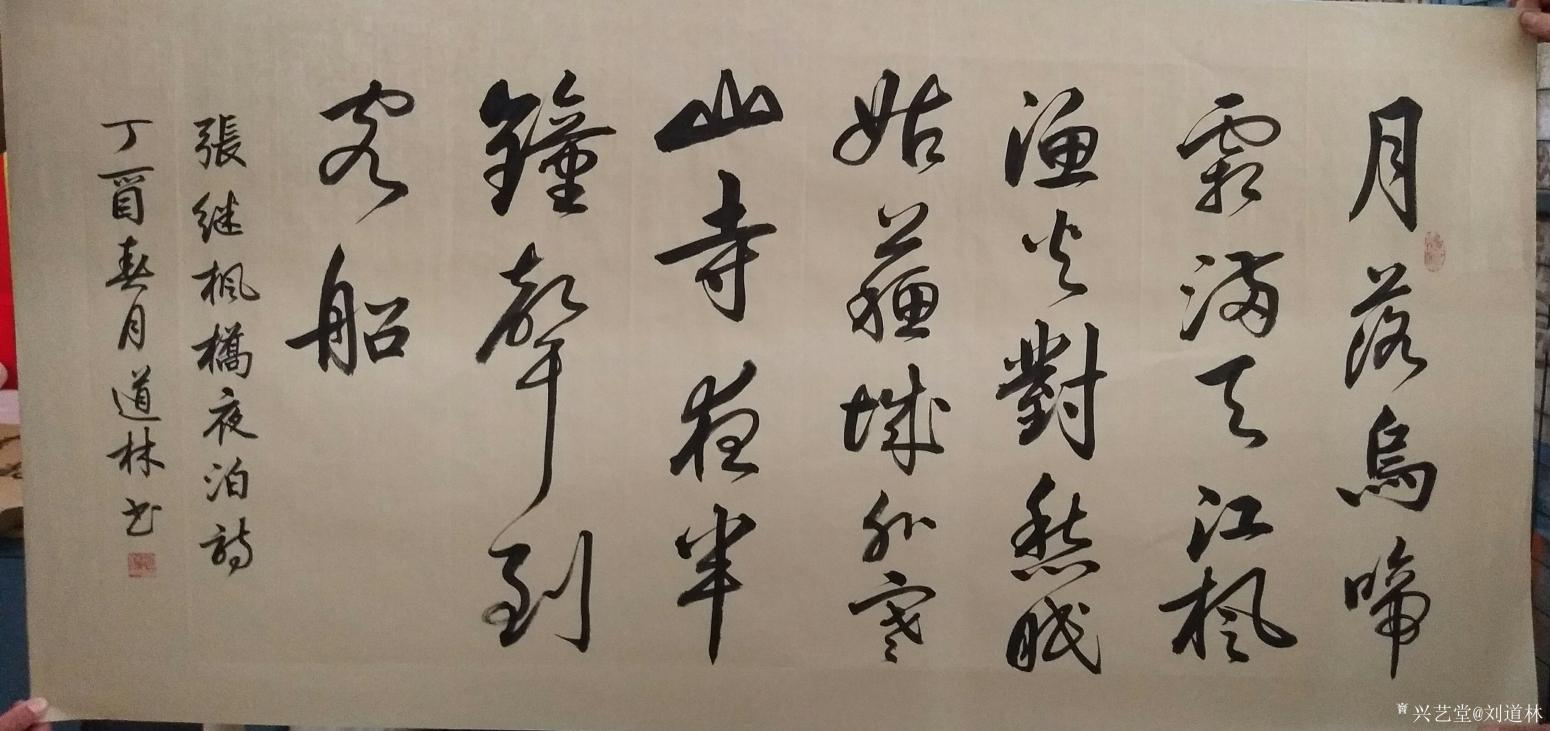 月落烏啼
霜满天江枫
渔火對愁眠
姑蘇城外寒
山寺夜半
鐘聲到
客船
張继枫橋夜泊詩
丁酉春月道林书
兴艺堂@刘道林